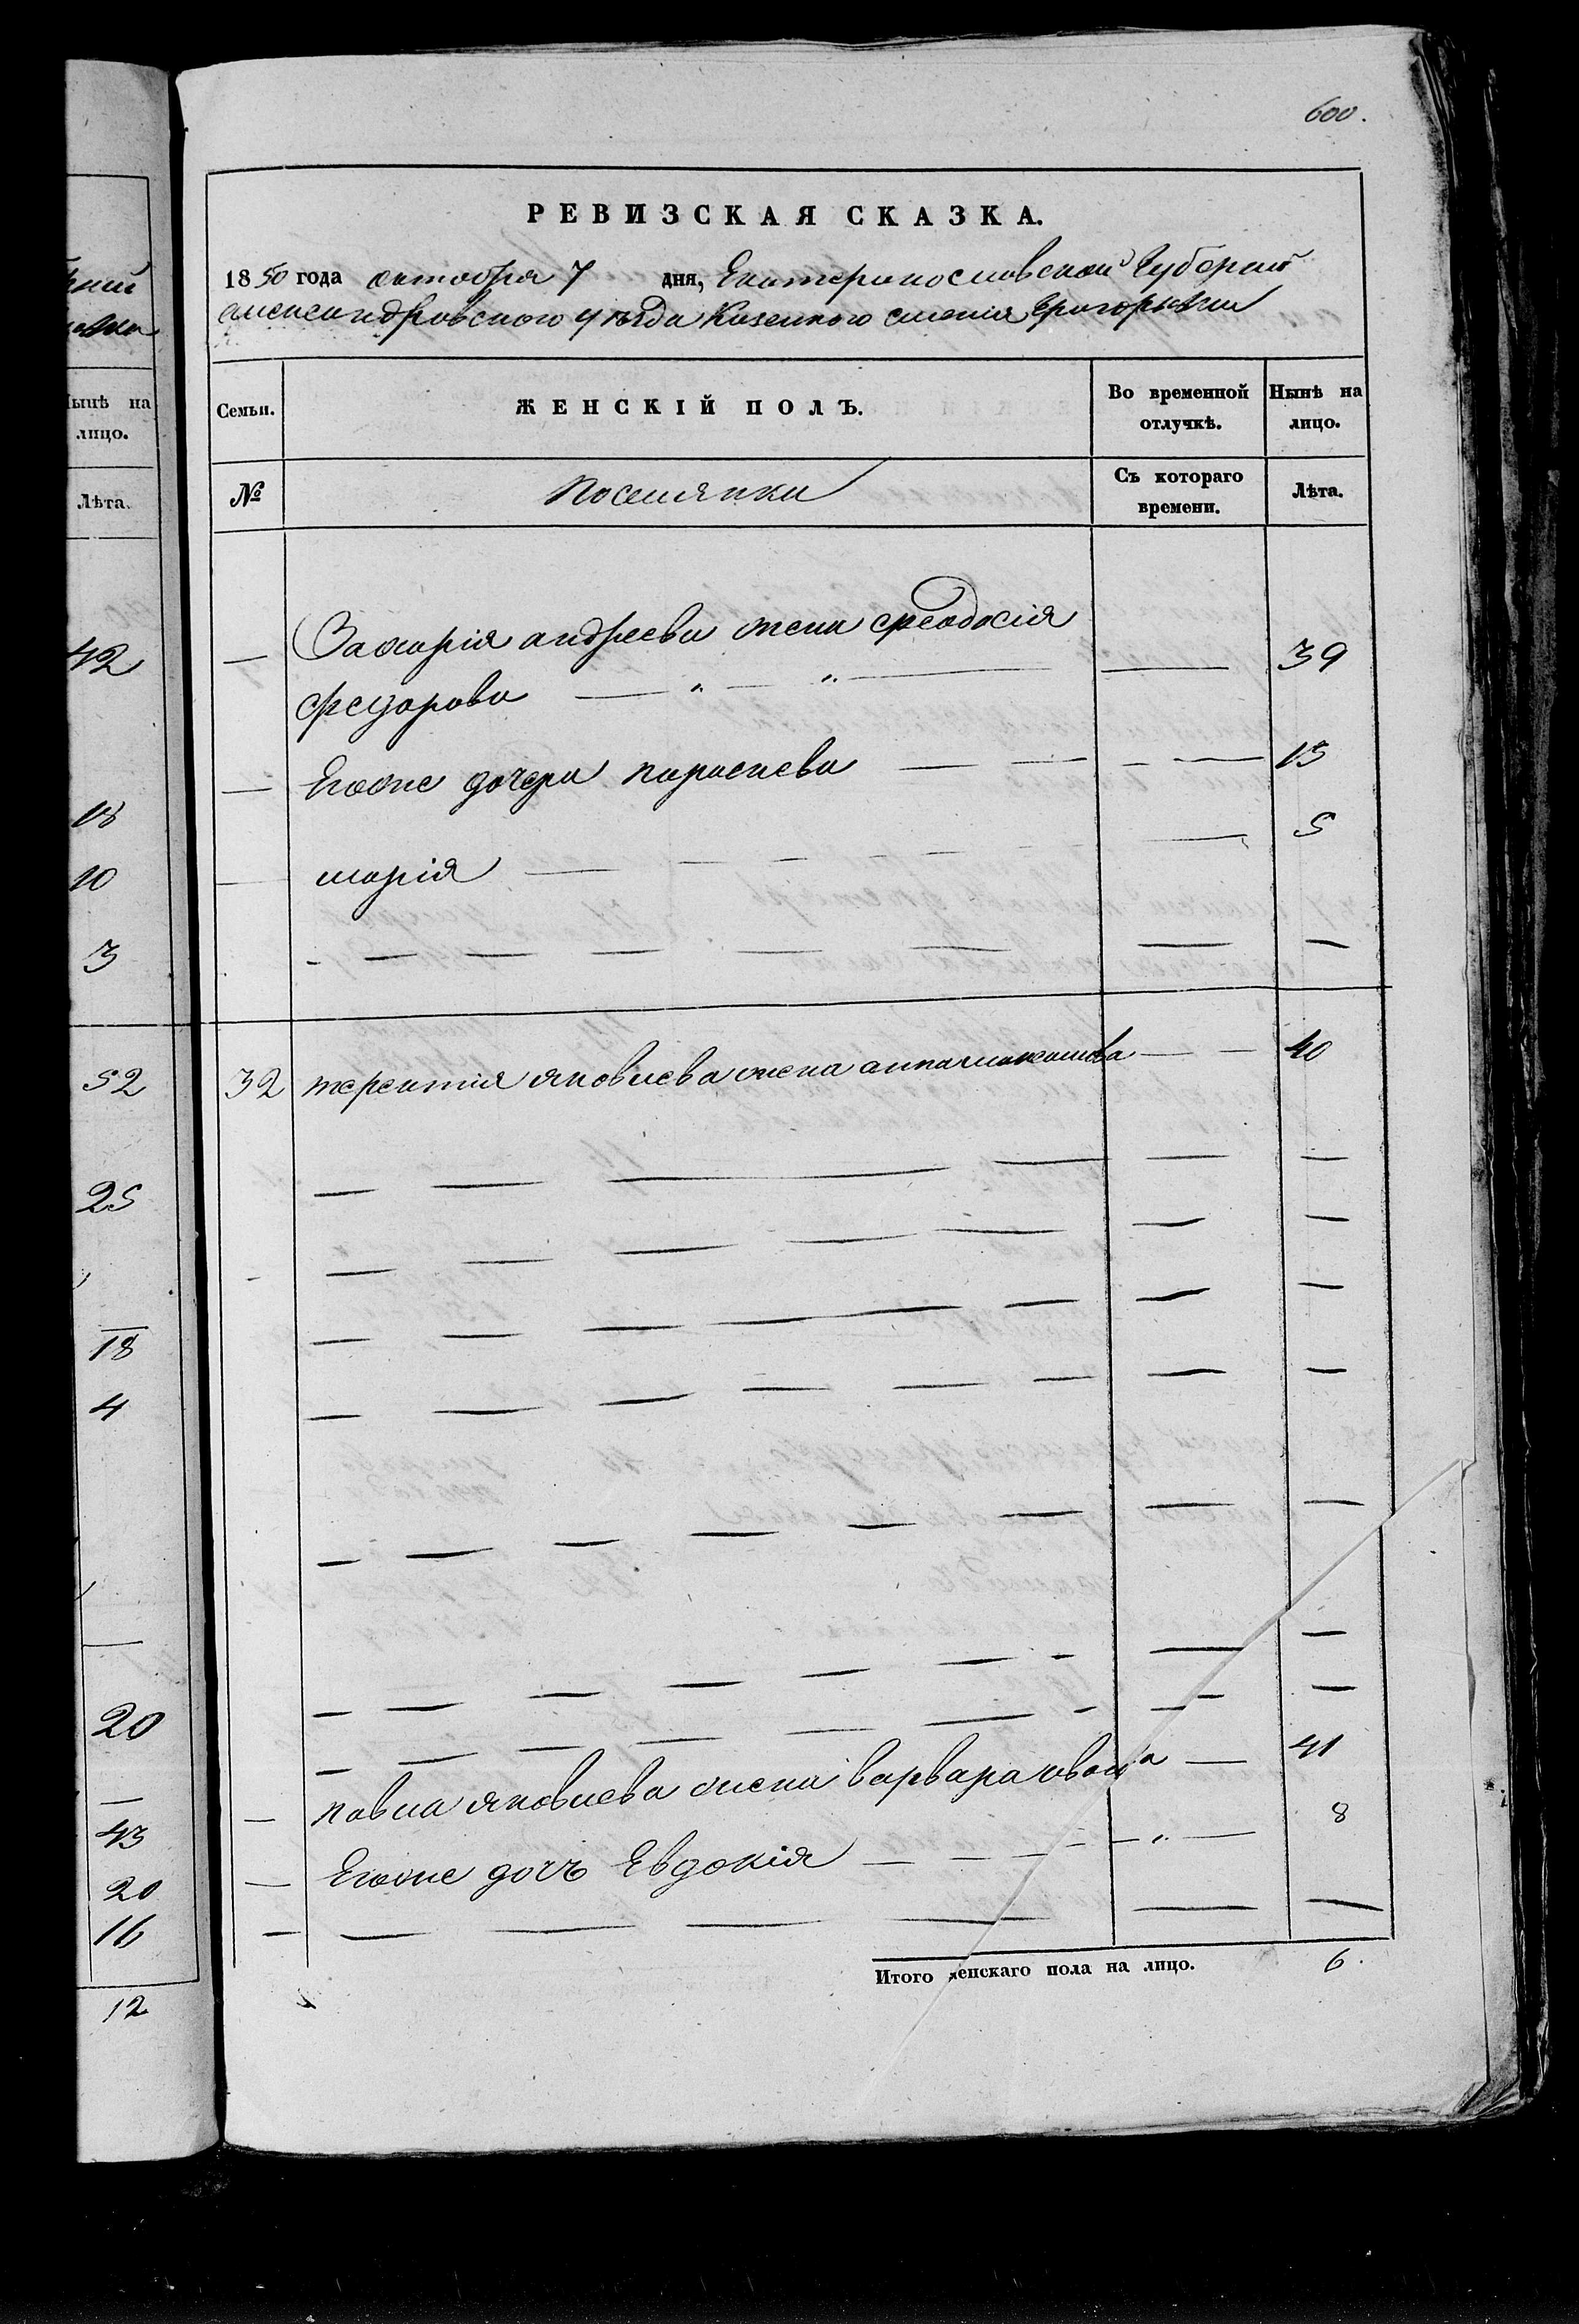 600.
РЕВИЗСКАЯ СКАЗКА.
1850 года октября 7 дня, Екатеринославской Губерніи
александровского уѣзда Казенного селенія Григорьевки
Семьи.
ЖЕНСКІЙ ПОЛЪ.
Во временной отлучкѣ.
Нынѣ на лицо.
№
Поселянки
Съ котораго времени.
Лѣта.
— Захарія андреева жена феодосія
федорова — " — " — — 39
— Егоже дочери параскева — — — — 15
— марія — — — — — — 5
32 терентия яковлева жена анна — — 40
— павла яковлева жена варвара — 41
— Егоже дочь Евдокія — — — — " — 8
Итого женскаго пола на лицо. 6.
ынѣ на
лицо.
Лѣта.
42
18
10
3
52
25
18
4
20
43
20
16
12